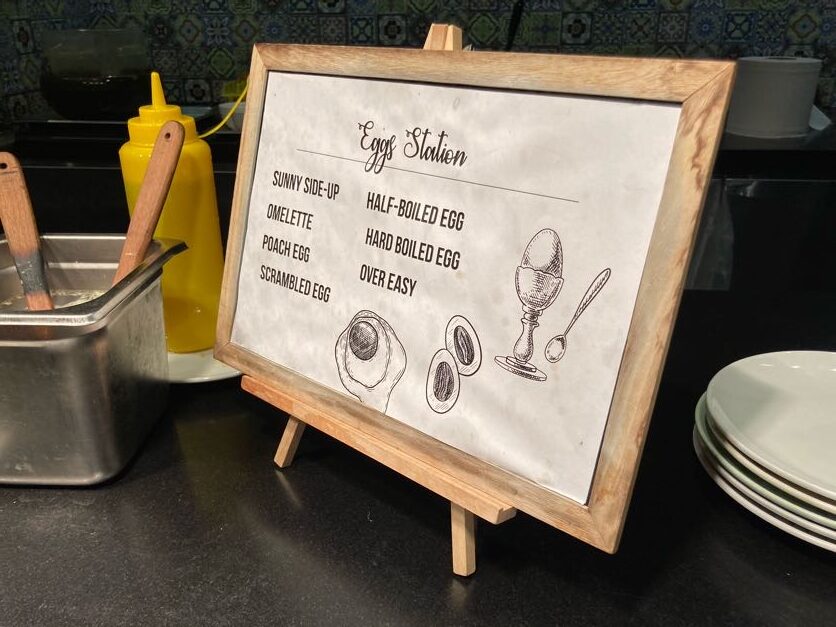 Eggs Station
SUNNY SIDE-UP
OMELETTE
POACH EGG
SCRAMBLED EGG
HALF-BOILED EGG
HARD BOILED EGG
OVER EASY